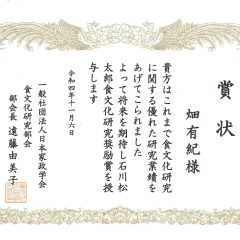 賞状
畑有紀様
貴方はこれまで食文化研究
に関する優れた研究業績を
あげてこられました
よって将来を期待し石川松
太郎食文化研究奨励賞を授
与します
令和四年十一月六日
一般社団法人日本家政学会
食文化研究部会
部会長 遠藤由美子